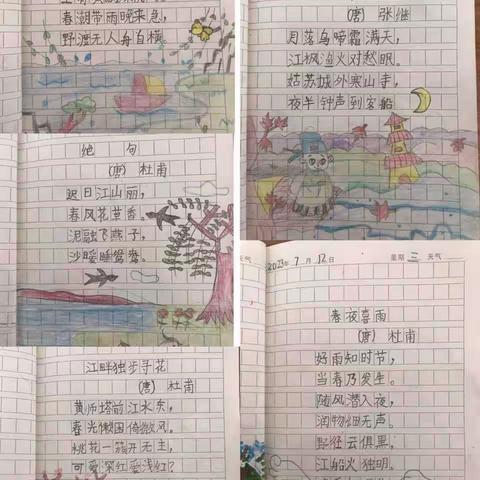 春潮带雨晚来急，
野渡无人舟自横
绝 句
(唐) 杜甫
迟日江山丽，
春风花草香。
泥融飞燕子，
沙暖睡鸳鸯。
江畔独步寻花
(唐) 杜甫
黄师塔前江水东，
春光懒困倚微风。
桃花一簇开无主，
可爱深红爱浅红？
(唐) 张继
月落乌啼霜满天，
江枫渔火对愁眠。
姑苏城外寒山寺，
夜半钟声到客船
2023年 7 月 12日 星期 三 天气
春夜喜雨
(唐) 杜甫
好雨知时节，
当春乃发生。
随风潜入夜，
润物细无声。
野径云俱黑，
江船火独明。